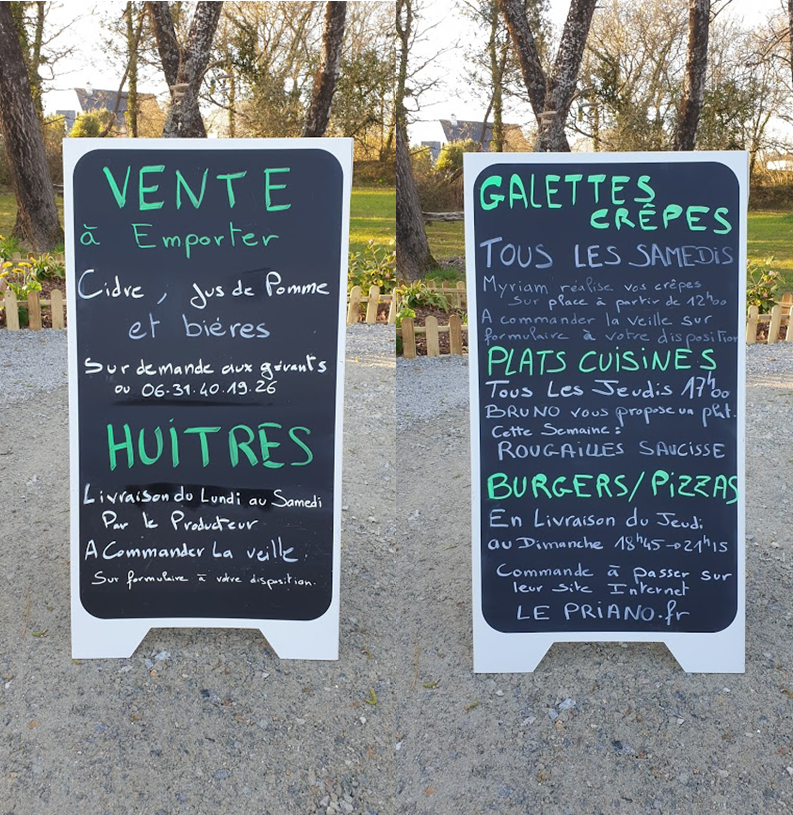 VENTE
à Emporter
Cidre, Jus de Pomme
et bières
Sur demande aux gérants
ou 06.31.40.19.26
HUITRES
Livraison du Lundi au Samedi
Par le Producteur
A Commander La veille.
Sur formulaire à votre disposition.
GALETTES
CRÊPES
TOUS LES SAMEDIS
Myriam réalise vos crêpes
sur place à partir de 12h00
A commander la veille sur
formulaire à votre disposition
PLATS CUISINES
Tous Les Jeudis 17h00
BRUNO vous propose un plat.
Cette Semaine :
ROUGAILLES SAUCISSE
BURGERS/PIZZAS
En Livraison du Jeudi
au Dimanche 18h45→21h15
Commande à passer sur
leur site Internet
LE PRIANO.fr